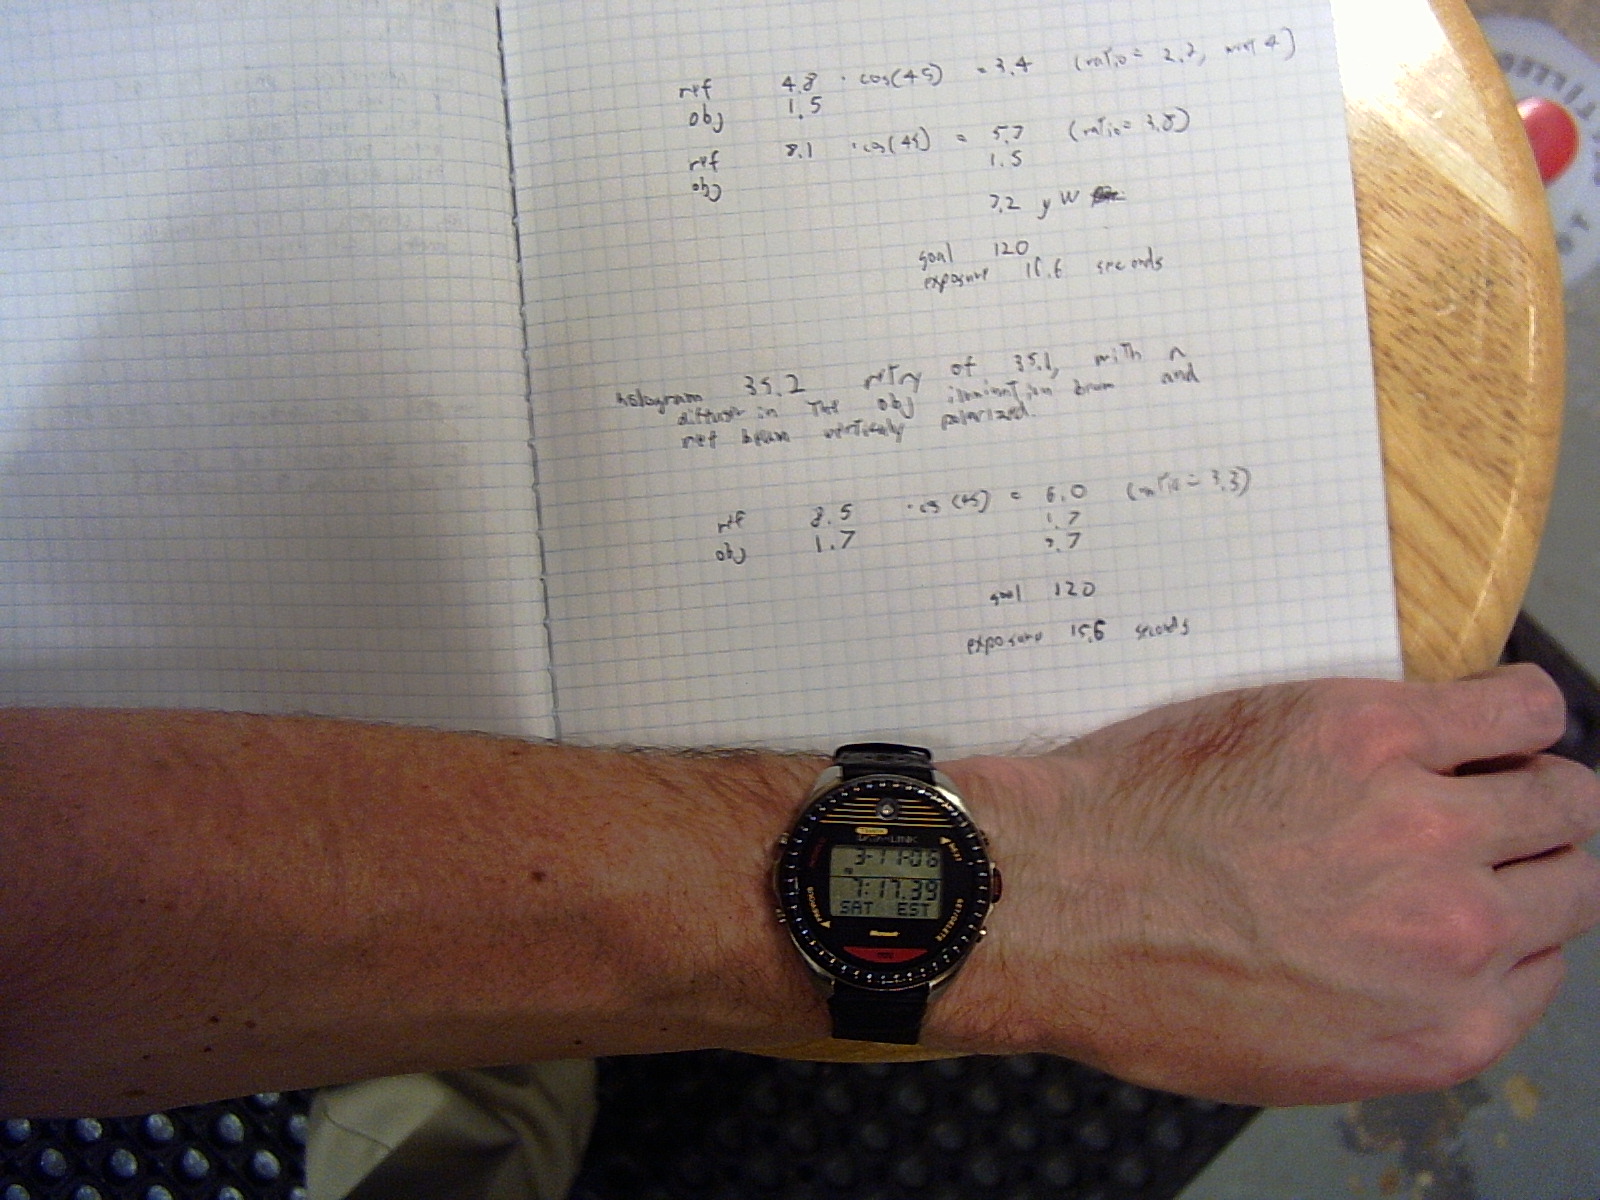 ref 4.8 · cos(45) = 3.4 (ratio = 2.2, want 4)
obj 1.5
ref 8.1 · cos(45) = 5.7 (ratio = 3.8)
obj 1.5
7.2 μW
goal 120
exposure 16.6 seconds
hologram 35.2 retry of 35.1, with a
diffuser in the obj illumination beam and
ref beam vertically polarized.
ref 8.5 · cos(45) = 6.0 (ratio = 3.3)
obj 1.7 1.7
7.7
goal 120
exposure 15.6 seconds
DATA LINK
3-11-06
7:17.39
SAT EST
NEXT
PREVIOUS
SET/DELETE
Microsoft